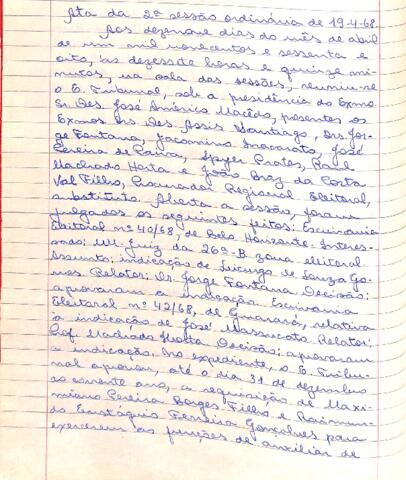 Ata da 2ª sessão ordinária de 19-4-68.
Aos dezenove dias do mês de abril
de um mil novecentos e sessenta e
oito, às dezessete horas e quinze mi-
nutos, na sala das sessões, reuniu-se
o E. Tribunal, sob a presidência do Exmo.
Sr. Des. José Américo Macêdo, presentes os
Exmos. Srs. Des. Assis Santiago, Drs. Jor-
ge Fontana, Jacomino Inacarato, José
Pereira de Paiva, Spyer Prates, Raul
Machado Horta e João Braz da Costa
Val Filho, Procurador Regional Eleitoral,
substituto. Aberta a sessão, foram
julgados os seguintes feitos: Escrivania
Eleitoral nº 40/68, de Belo Horizonte. Interes-
sado: M. Juiz da 26ª-B zona eleitoral.
Assunto: indicação de Licurgo de Souza Go-
mes. Relator: Dr. Jorge Fontana. Decisão:
aprovaram a indicação. Escrivania
Eleitoral nº 42/68, de Guarará, relativa
à indicação de José. Relator:
Prof. Machado Horta. Decisão: aprovaram
a indicação. No expediente, o E. Tribu-
nal aprovou, até o dia 31 de dezembro
do corrente ano, a requisição de Maxi-
miano Pereira Borges Filho e Raimun-
do Eustáquio Ferreira Gonçalves para
exercerem as funções de auxiliar de